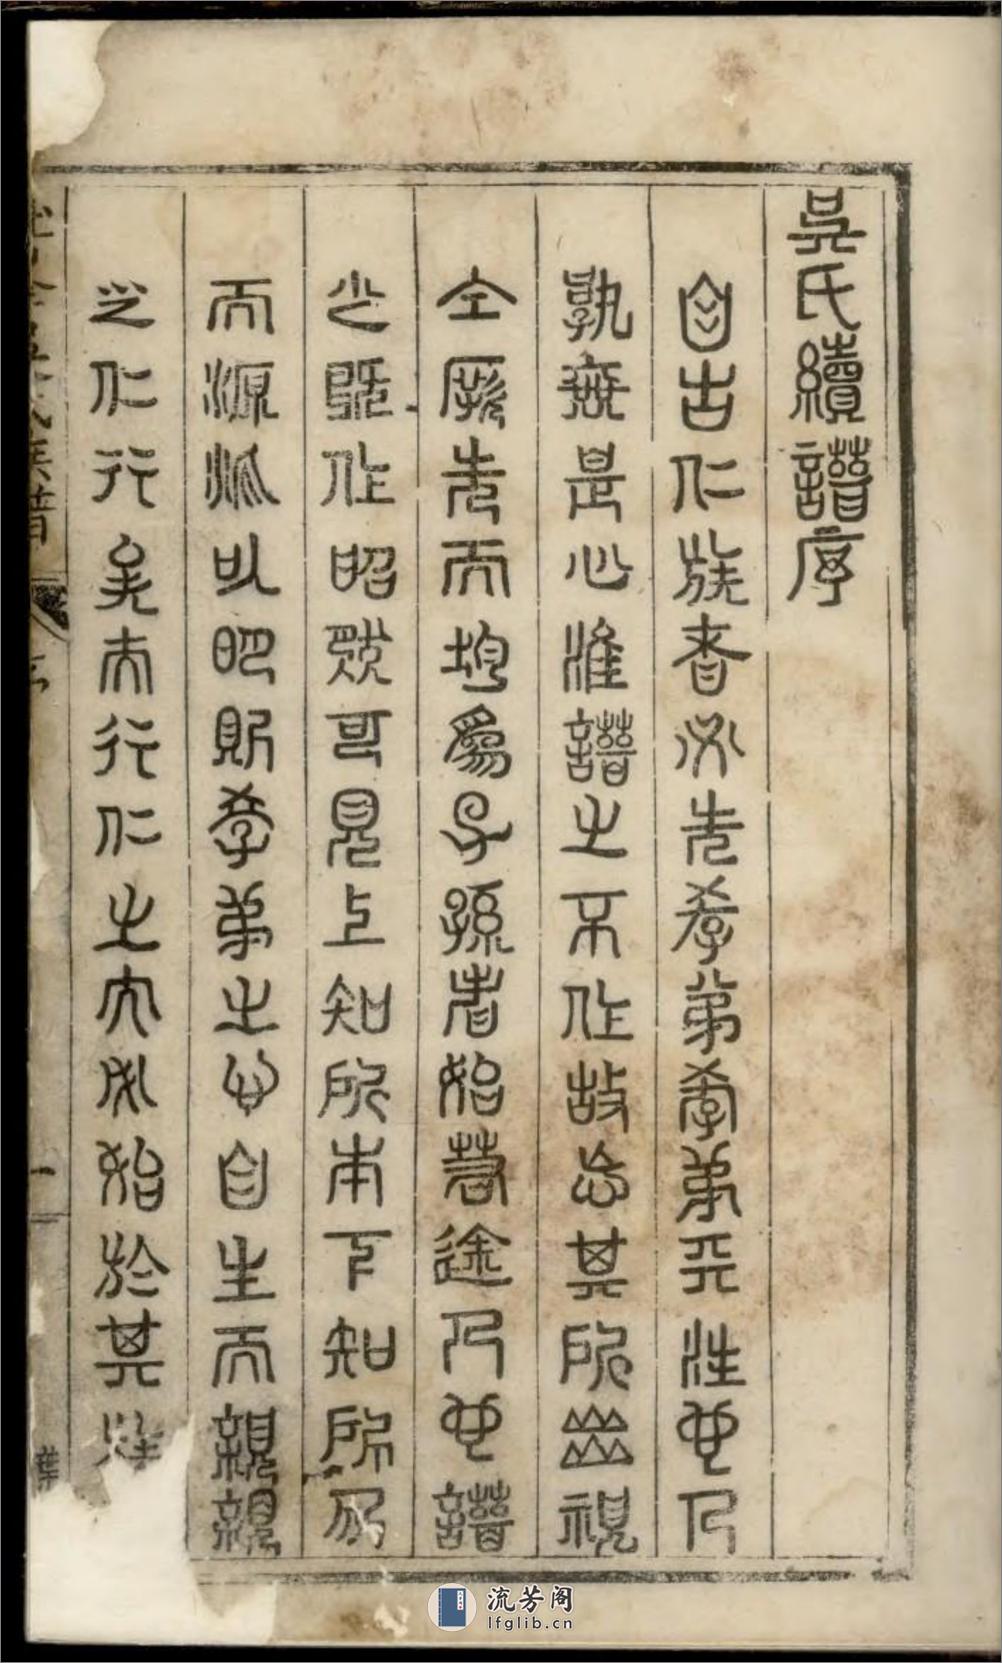 吳氏續譜序
自古仁族者必先孝弟孝弟天性也人
孰無是心惟譜之不作故忘其所視
仝厥先而均爲子孫者始若途人也譜
之既作昭然可見上知所本下知所分
而源流以明則孝弟之心自生而親親
之仁行矣夫行仁之大必始於其
族譜
序
一
流芳阁
lfglib.cn